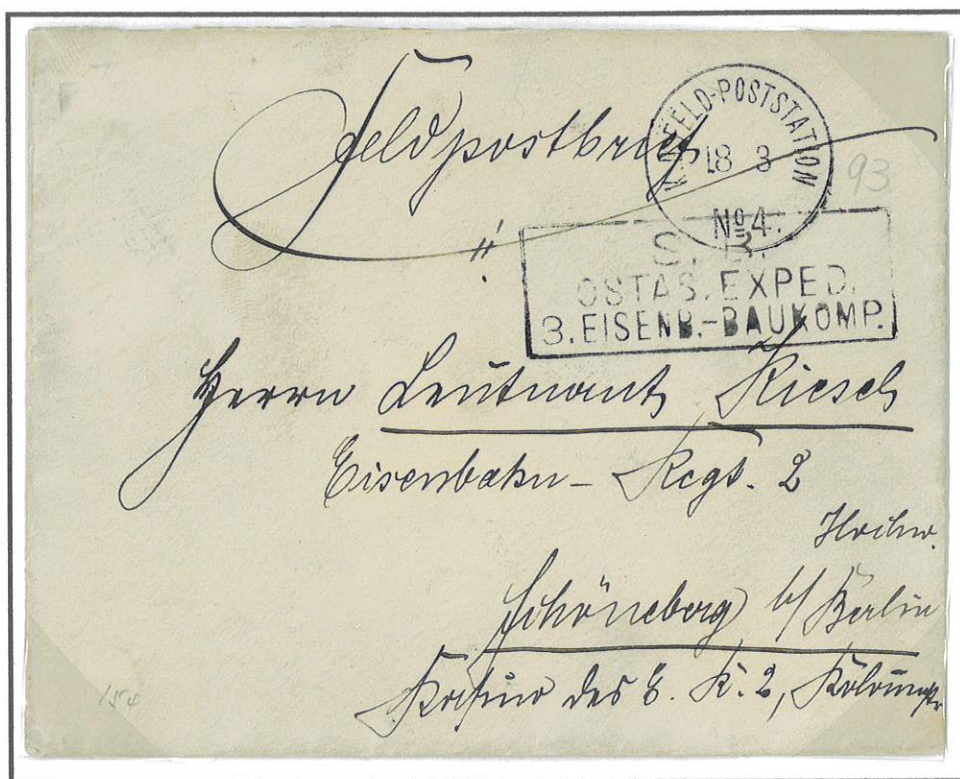 Feldpostbrief!
K.D. FELD-POSTSTATION
18 3
No 4.
93
S. B.
OSTAS. EXPED.
3. EISENB.-BAUKOMP.
Herrn Leutnant
Eisenbahn- Regt. 2
Schöneberg b/ Berlin
Kasino des E. R. 2,
154